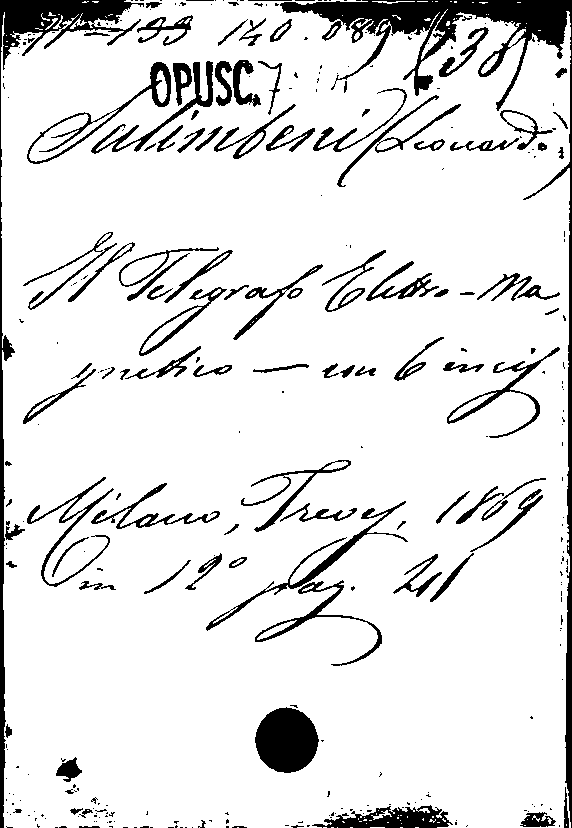 11-133 140.089 (38)
OPUSC.
Salimbeni (Leonardo)
Il Telegrafo Elettro-Ma,
gnetico — con 6 incis.
Milano, Treves, 1869
in 12° pag. 241